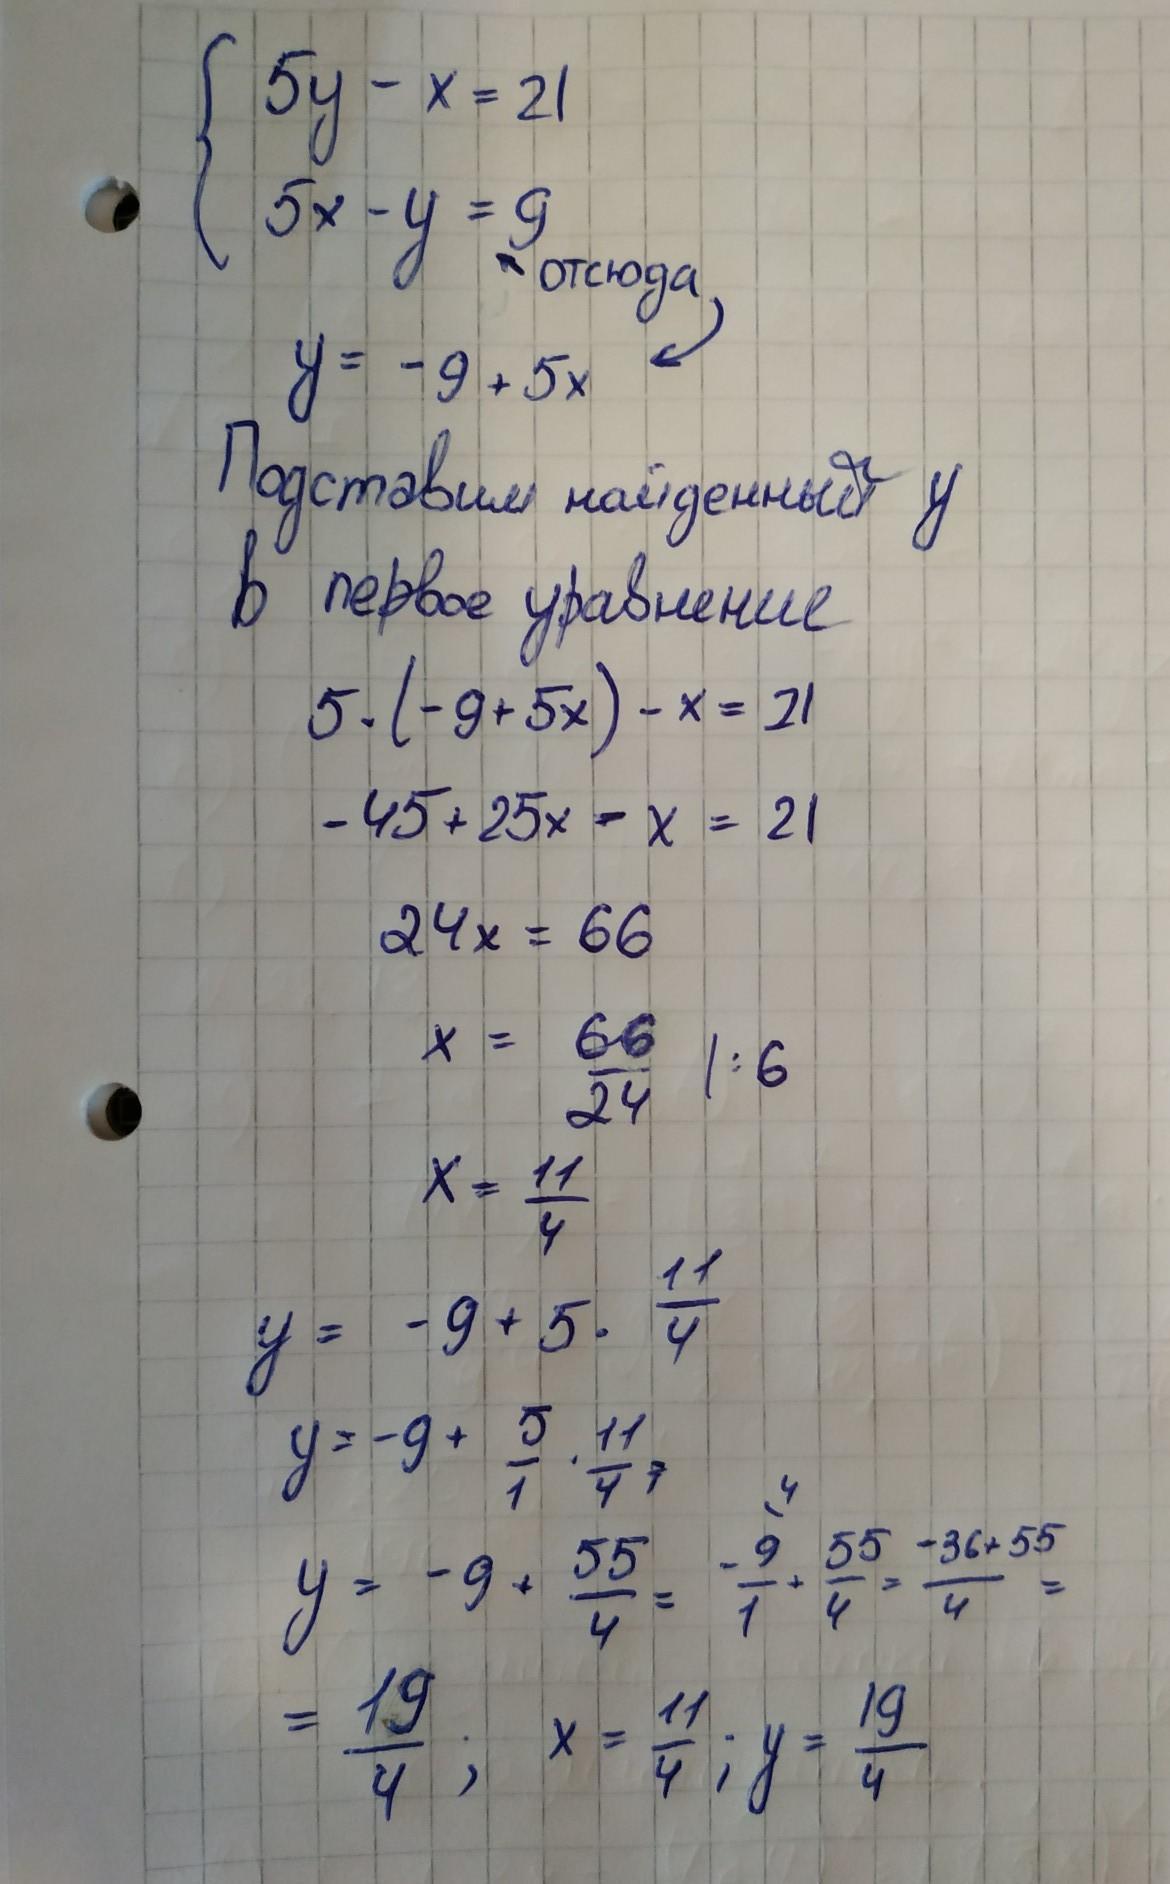 5y - x = 21
5x - y = 9
отсюда
y = -9 + 5x
Подставим найденный y
в первое уравнение
5·(-9 + 5x) - x = 21
-45 + 25x - x = 21
24x = 66
x = 66/24 | : 6
x = 11/4
y = -9 + 5 · 11/4
y = -9 + 5/1 · 11/4 =
y = -9 + 55/4 = -9\4/1 + 55/4 = -36+55/4 =
= 19/4 ; x = 11/4 ; y = 19/4